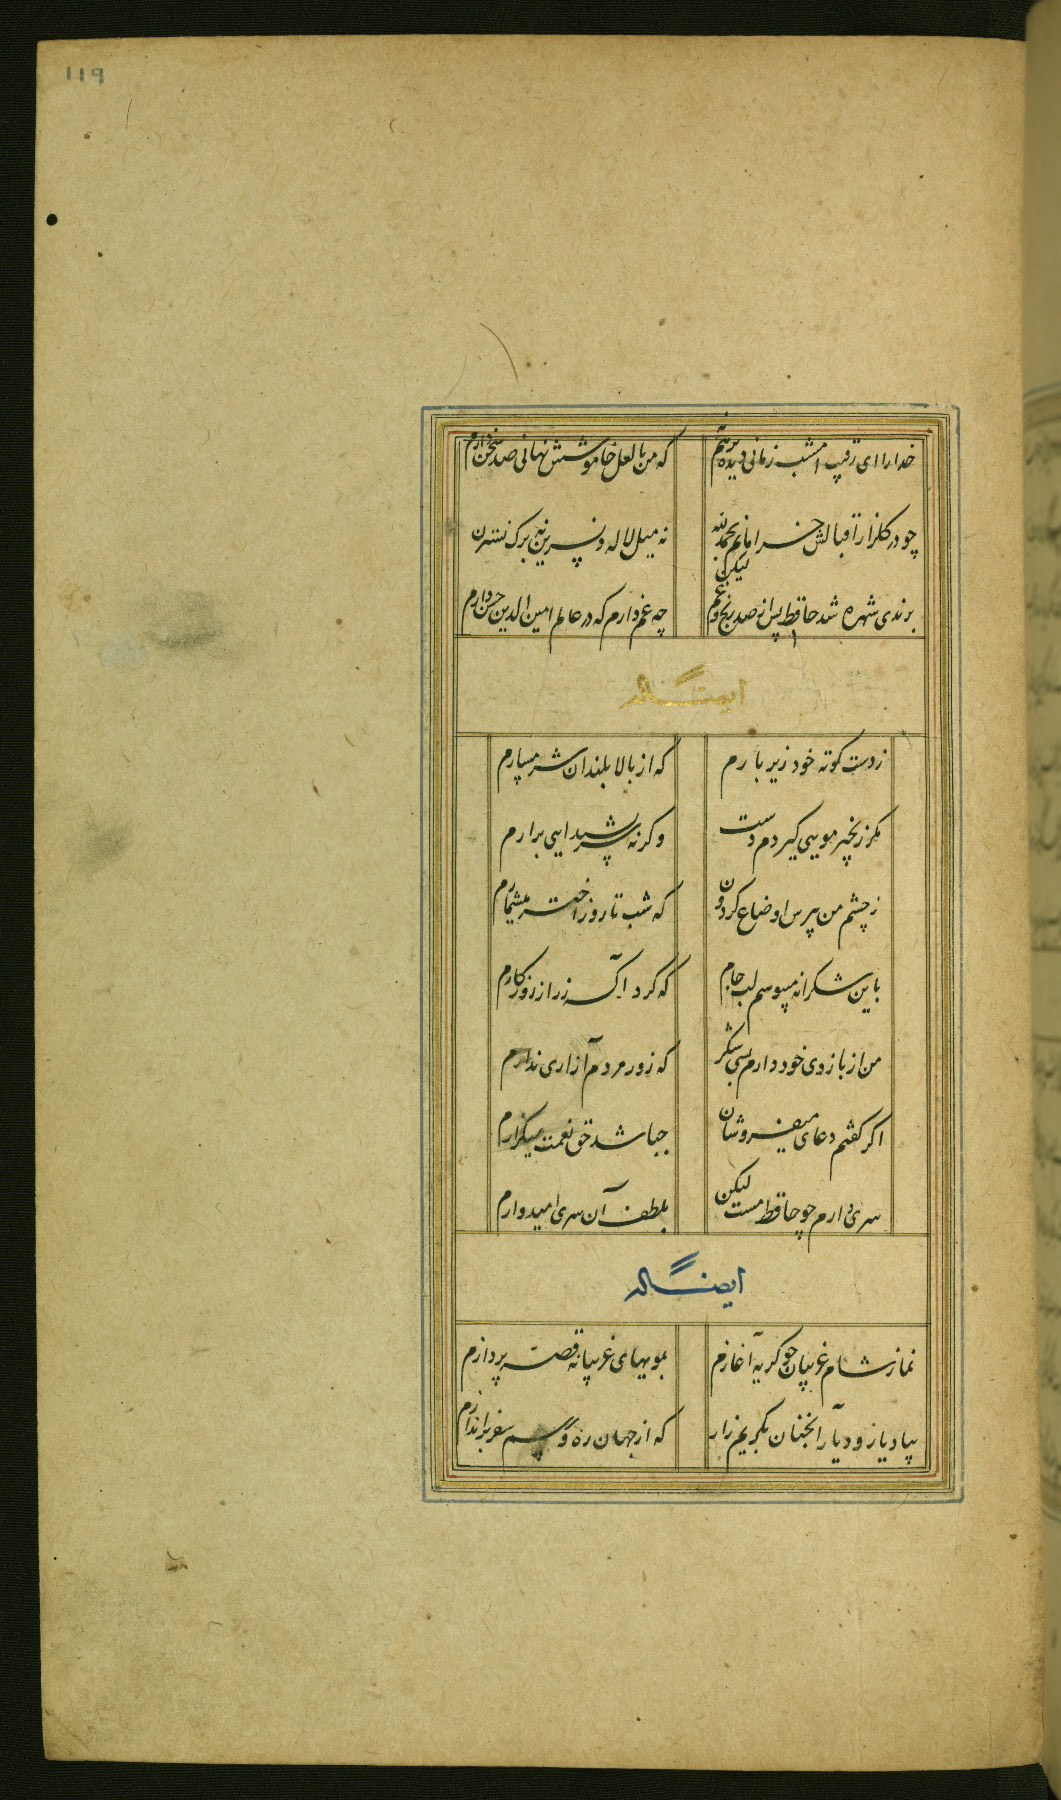 119
خدارا ای رقیب امشب زمانی دیده بر هم که من با لعل خاموشش نهانی صد سخن دارم
چو در گلزار اقبالش خرامانم بحمدلله نه میل لاله و نسرین نه برک نسترن
برندی شهره شد حافظ پس از صد رنج و غم لیکن چه غم دارم که در عالم امین الدین حسن دارم
ایضا له
ز دست کوته خود زیر بارم که از بالا بلندان شرمسارم
مکر زنجیر مویی کیردم دست وکرنه سر بشیدایی برارم
ز چشم من بپرس اوضاع کردون که شب تا روز اختر میشمارم
باین شکرانه میبوسم لب جام که کرد آکه ز راز روزکارم
من از بازوی خود دارم بسی شکر که زور مردم آزاری ندارم
اکر کفتم دعای میفروشان چباشد حق نعمت میکزارم
سری دارم چو حافظ مست لیکن بلطف آن سری امیدوارم
ایضا له
نماز شام غریبان چو کریه آغازم بمویهای غریبانه قصه پردازم
بیاد یار و دیار آنچنان بکریم زار که از جهان ره و رسم سفر براندازم